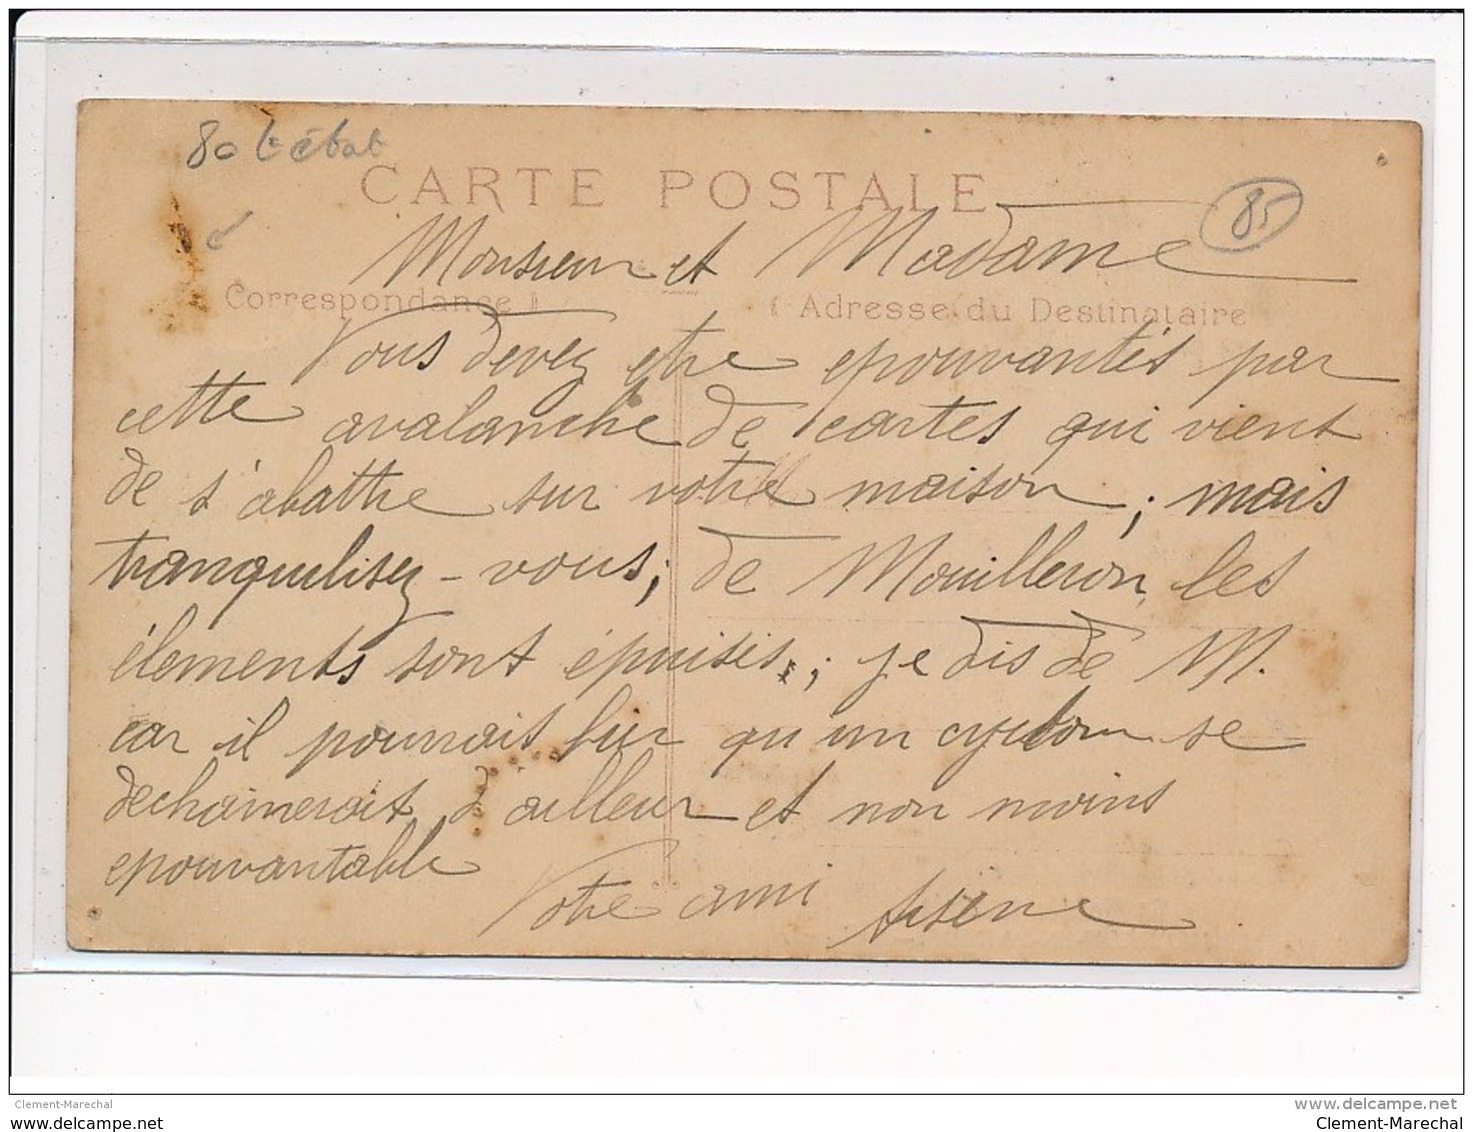 80 Lr état
CARTE POSTALE
85
Monsieur et Madame
Correspondance
Adresse du Destinataire
Vous devez etre epouvantés par
cette avalanche de cartes qui vient
de s'abattre sur votre maison ; mais
tranquilisez-vous ; de Mouilleron, les
élements sont épuisés ; je dis de M.
car il pourrais fuir qu'un cyclone se
dechainerait d'ailleur et non moins
epouvantable
Votre ami Arsène
Clement-Marechal
www.delcampe.net
Clement-Marechal
Clement-Marechal